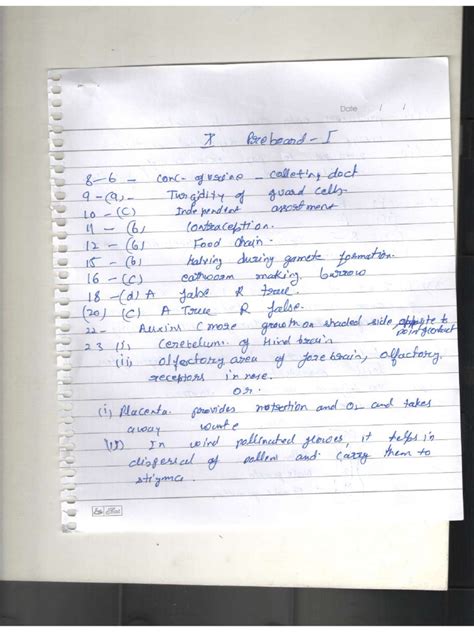 Date / /
X Preboard - I
8-6 - Conc. of urine - colleting duct
9 - (a) - Turgidity of guard cells
10 - (C) Independent assortment
11 - (b) contraception.
12 - (b) Food chain.
15 - (b) halving during gamete formation.
16 - (C) earworm making burrow
18 - (d) A false R true.
(20) (C) A True R false.
22 - Auxins C more growth on shaded side, opposite to point of contact
23 (i) Cerebelum of Hind brain
(ii) olfactory area of forebrain, olfactory
receptors in nose.
or.
(i) Placenta provides nutrition and O2 and takes
away waste
(ii) In wind pollinated flowers, it helps in
dispersal of pollen and carry them to
stigma.